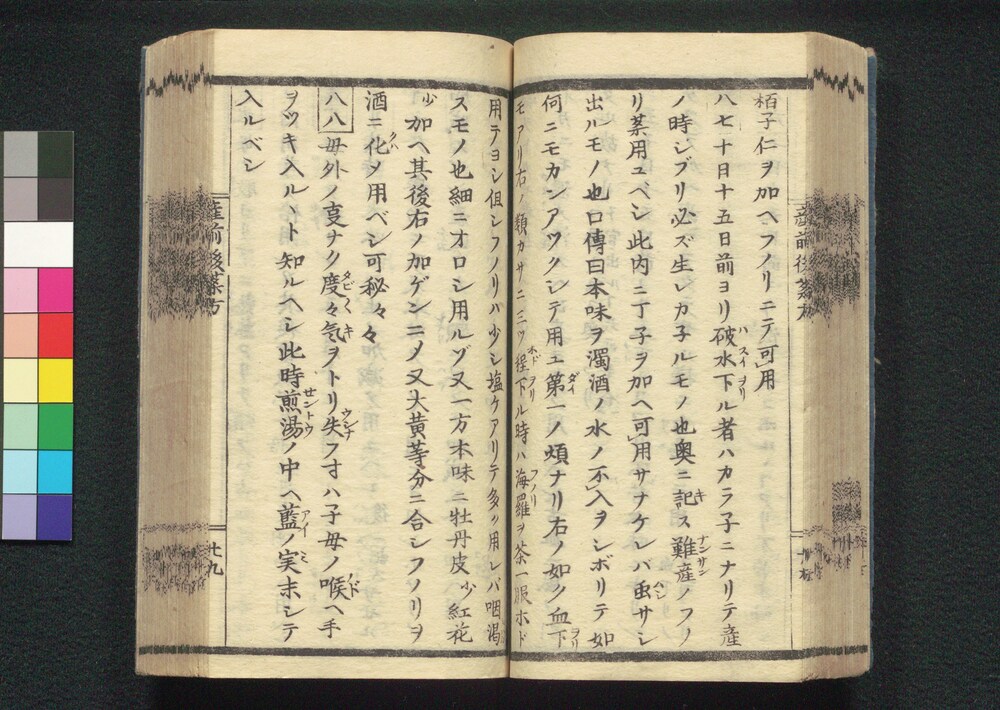 栢子仁ヲ加ヘフノリニテ可用
八七 十日十五日前ヨリ破水下ル者ハカラ子ニナリテ産
ノ時シブリ必ズ生レカ子ルモノ也奥ニ記ス難産ノフノ
リ薬用ユベシ此内ニ丁子ヲ加ヘ可用サナケレバ虫サシ
出ルモノ也口傳曰本味ヲ濁酒ノ水ノ不入ヲシボリテ如
何ニモカンアツクシテ用ユ第一ノ煩ナリ右ノ如ノ血下
モアリ右ノ類カサニ三ツ程下ル時ハ海羅ヲ茶一服ホド
用テヨシ但シフノリハ少シ塩ケアリテ多ク用レバ咽渇
スモノ也細ニオロシ用ルゾ又一方本味ニ牡丹皮少紅花
少加ヘ其後右ノ加ゲンニメ又大黄等分ニ合シフノリヲ
酒ニ化メ用ベシ可秘々々
八八 毋外ノ変ナク度々気ヲトリ失フ寸ハ子母ノ喉ヘ手
ヲツキ入ルト知ルヘシ此時煎湯ノ中ヘ藍ノ実末シテ
入ルベシ
産前後薬方
廿九